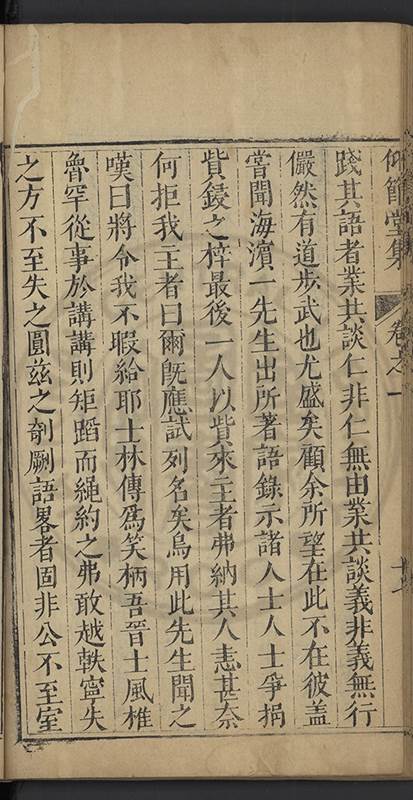 仰節堂集 卷之一
踐其語者業共談仁非仁無由業共談義非義無行
儼然有道步武也尤盛矣顧余所望在此不在彼蓋
嘗聞海濵一先生出所著語錄示諸人士人士爭捐
貲鋟之梓最後一人以貲來主者弗納其人恚甚奈
何拒我主者曰爾旣應試列名矣烏用此先生聞之
嘆曰將令我不暇給耶士林傳爲笑柄吾晉士風椎
魯罕從事於講講則矩蹈而繩約之弗敢越軼寧失
之方不至失之圓兹之剞劂語畧者固非公不至室